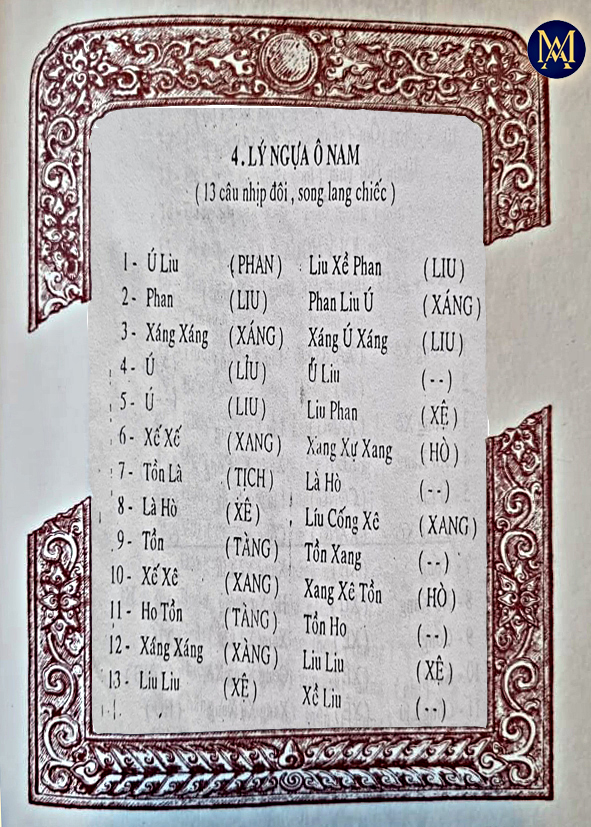 MA
4.LÝ NGỰA Ô NAM
( 13 câu nhịp đôi , song lang chiếc )
1 - Ú Liu (PHAN) Liu Xề Phan (LIU)
2 - Phan (LIU) Phan Liu Ú (XÁNG)
3 - Xáng Xáng (XÁNG) Xáng Ú Xáng (LIU)
4 - Ú (LỈU) Ú Liu (--)
5 - Ú (LIU) Liu Phan (XỆ)
6 - Xế Xế (XANG) Xang Xự Xang (HÒ)
7 - Tồn Là (TỊCH) Là Hò (--)
8 - Là Hò (XÊ) Líu Cống Xê (XANG)
9 - Tồn (TÀNG) Tồn Xang (--)
10 - Xế Xê (XANG) Xang Xê Tồn (HÒ)
11 - Ho Tồn (TÀNG) Tồn Ho (--)
12 - Xáng Xáng (XÀNG) Liu Liu (XỆ)
13 - Liu Liu (XÊ) Xề Liu (--)